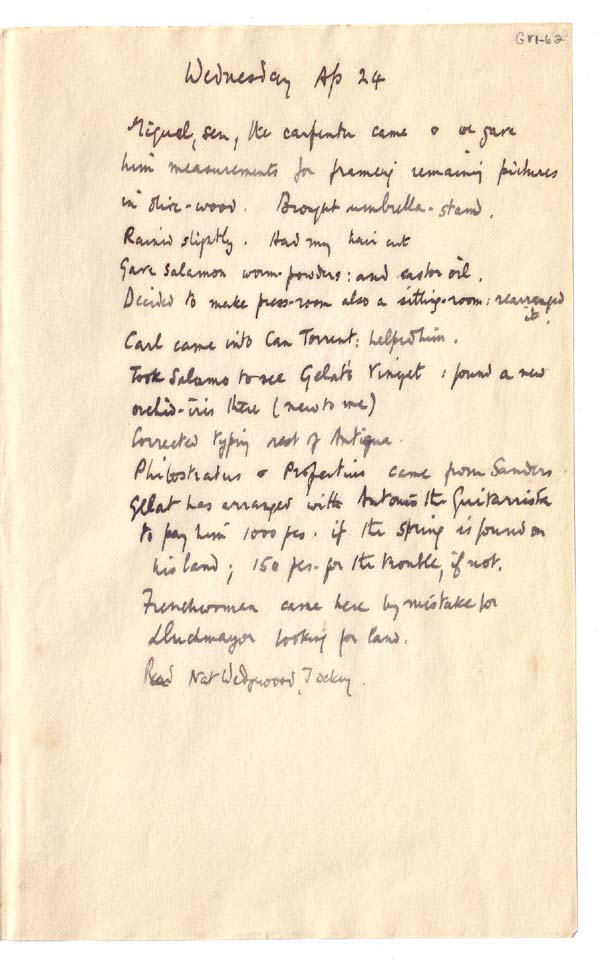 GVI-62
Wednesday Ap 24
Miguel, sen, the carpenter came & we gave
him measurements for framing remaining pictures
in olive-wood. Brought umbrella-stand.
Rained slightly. Had my hair cut
Gave Salamon worm-powders: and castor oil.
Decided to make press-room also a sitting-room: rearranged
it.
Carl came into Can Torrent: helped him.
Took Salamo to see Gelat's Vinyet: found a new
orchid-iris there (new to me)
Corrected typing rest of Antigua.
Philostratus & Propertius came from Sanders
Gelat has arranged with Antonis the Guitarrista
to pay him 1000 pes. if the spring is found on
his land; 150 pes. for the trouble, if not.
Frenchwoman came here by mistake for
Lluchmayor looking for land.
Read Nat Wedgwood, Jockey.